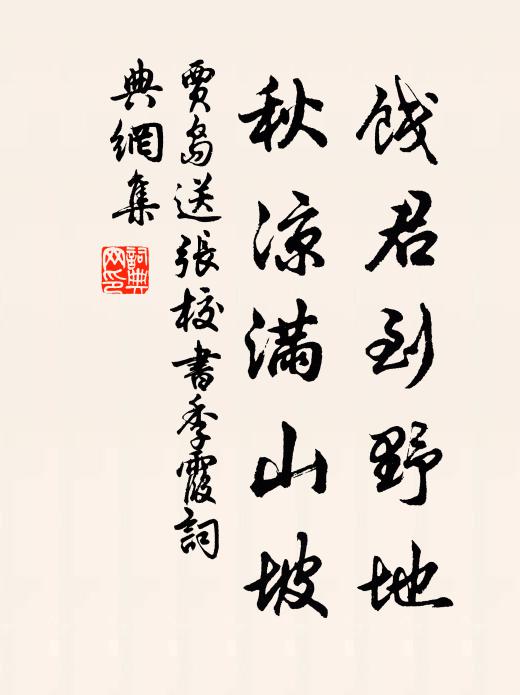 餞君到野地
秋涼滿山坡
賈島送張校書季霞詞
典網集
詞典網印